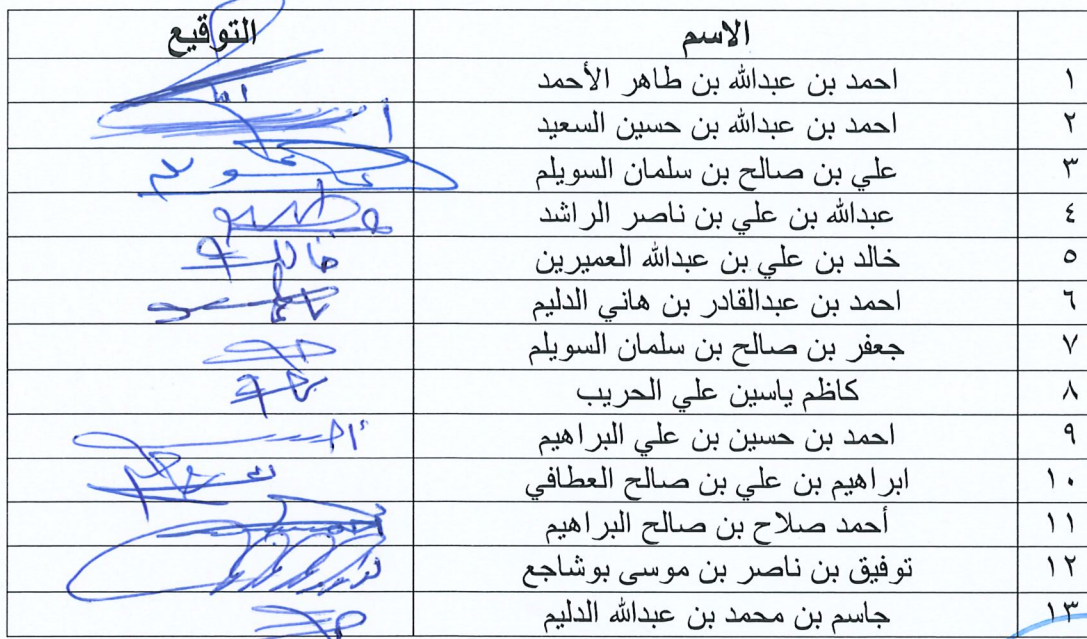 الاسم التوقيع
١ احمد بن عبدالله بن طاهر الأحمد
٢ احمد بن عبدالله بن حسين السعيد
٣ علي بن صالح بن سلمان السويلم
٤ عبدالله بن علي بن ناصر الراشد
٥ خالد بن علي بن عبدالله العميرين
٦ احمد بن عبدالقادر بن هاني الدليم
٧ جعفر بن صالح بن سلمان السويلم
٨ كاظم ياسين علي الحريب
٩ احمد بن حسين بن علي البراهيم
١٠ ابراهيم بن علي بن صالح العطافي
١١ أحمد صلاح بن صالح البراهيم
١٢ توفيق بن ناصر بن موسى بوشاجع
١٣ جاسم بن محمد بن عبدالله الدليم